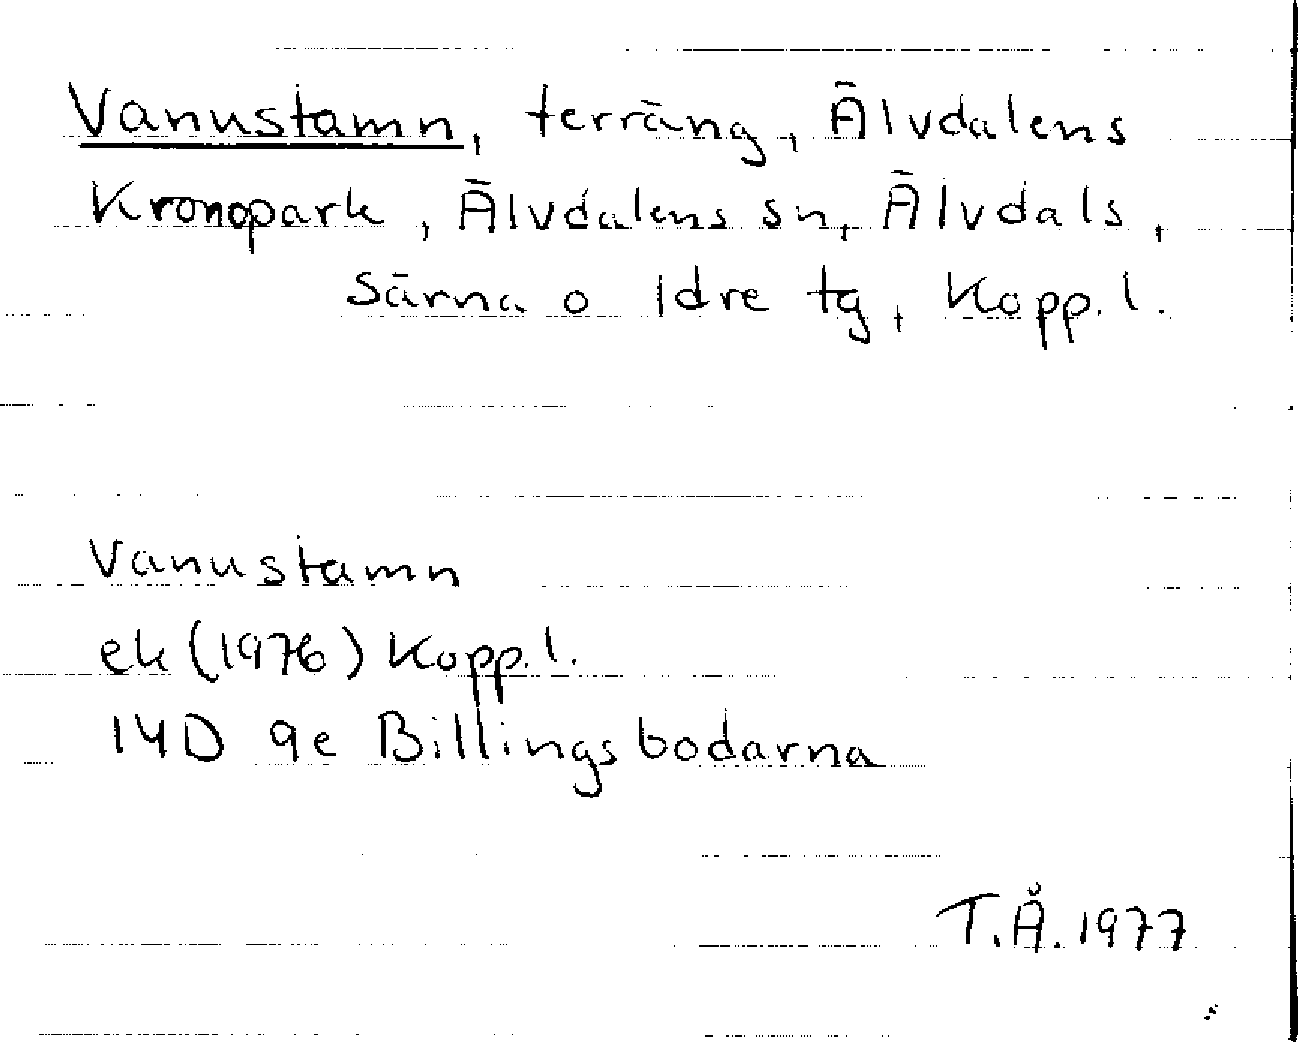 Vanustamn, terräng, Älvdalens
Kronopark, Älvdalens sn, Älvdals,
Särna o Idre tg, Kopp.l.
Vanustamn
ek (1976) Kopp.l.
14D 9e Billingsbodarna
T.Å. 1977